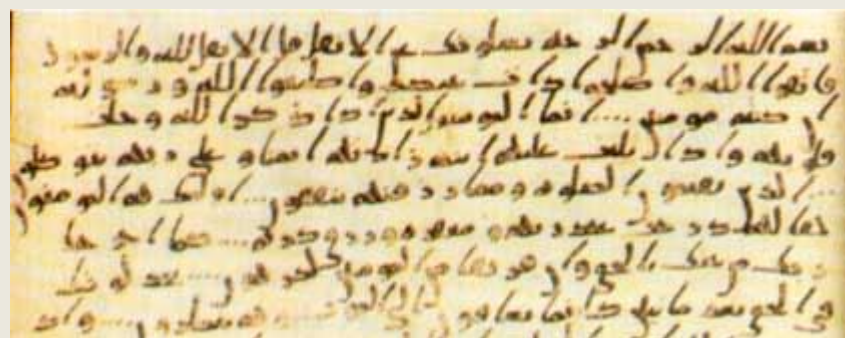 بسم الله الرحمن الرحيم يسلونك عن الانفال قل الانفال لله والرسول
فاتقوا الله واصلحوا ذات بينكم واطيعوا الله ورسوله
ان كنتم مومنين .... انما المومنون الذين اذا ذكر الله وجلت
قلوبهم واذا تليت عليهم ايته زادتهم ايمنا وعلى ربهم يتوكلون
... الذين يقيمون الصلوه ومما رزقنهم ينفقون ... اولئك هم المومنون
حقا لهم درجت عند ربهم ومغفره ورزق كريم ... كما اخرجك
ربك من بيتك بالحق وان فريقا من المومنين لكرهون .... يجدلونك
في الحق بعد ما تبين كانما يساقون الى الموت وهم ينظرون .... واذ